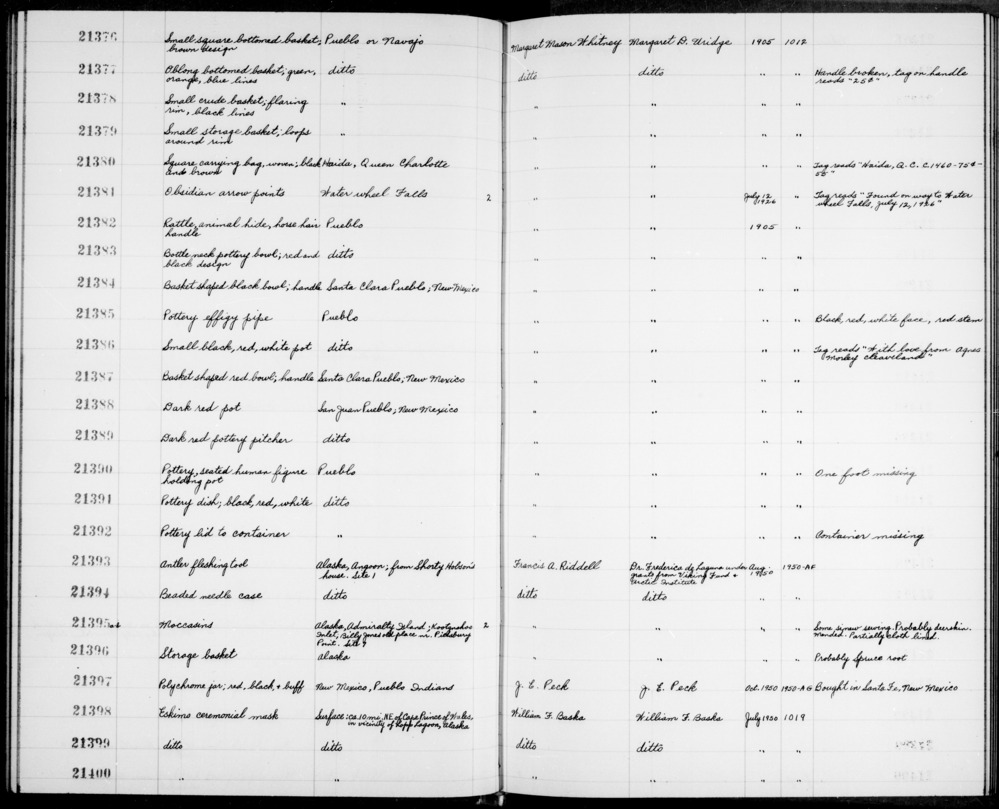 21376 Small square bottomed basket; Pueblo or Navajo Margaret Mason Whitney Margaret D. Uridge 1905 1012
brown design
21377 Oblong bottomed basket; green, ditto ditto ditto " " Handle broken, tag on handle
orange, blue lines reads "25¢"
21378 Small crude basket; flaring " " " " "
rim, black lines
21379 Small storage basket; loops " " " " "
around rim
21380 Square carrying bag, woven; black Haida, Queen Charlotte " " " " Tag reads "Haida, Q.C. C.1460-75¢-
and brown 55"
21381 Obsidian arrow points Water wheel Falls 2 " " July 12 " Tag reads "Found on way to Water
1926 wheel Falls, July 12, 1926"
21382 Rattle, animal hide, horse hair Pueblo " " 1905 "
handle
21383 Bottle neck pottery bowl; red and ditto " " " "
black design
21384 Basket shaped black bowl; handle Santa Clara Pueblo; New Mexico " " " "
21385 Pottery effigy pipe Pueblo " " " " Black, red, white face, red stem
21386 Small black, red, white pot ditto " " " " Tag reads "With love from Agnes
Morley Cleaveland"
21387 Basket shaped red bowl; handle Santa Clara Pueblo; New Mexico " " " "
21388 Dark red pot San Juan Pueblo; New Mexico " " " "
21389 Dark red pottery pitcher ditto " " " "
21390 Pottery, seated human figure Pueblo " " " " One foot missing
holding pot
21391 Pottery dish; black, red, white ditto " " " "
21392 Pottery lid to container " " " " " Container missing
21393 Antler fleshing tool Alaska, Angoon; from Shorty Hobson's Francis A. Riddell Dr. Frederica de Laguna under Aug. 1950-AF
house. Site 1 grants from Viking Fund + 1950
Arctic Institute
21394 Beaded needle case ditto ditto ditto " "
21395 Moccasins Alaska, Admiralty Island; Kootznahoo 2 " " " " Some sinew sewing. Probably deerskin.
Inlet, Billy Jones old place nr. Pillsbury Mended. Partially cloth lined.
Point. Site 9
21396 Storage basket Alaska " " " " Probably spruce root
21397 Polychrome jar; red, black, + buff New Mexico, Pueblo Indians J. E. Peck J. E. Peck Oct. 1950 1950-AG Bought in Santa Fe, New Mexico
21398 Eskimo ceremonial mask Surface: ca. 10 mi. NE of Cape Prince of Wales, William F. Baska William F. Baska July 1950 1019
in vicinity of Lagoon, Alaska
21399 ditto ditto ditto ditto " "
21400 " " " " " "